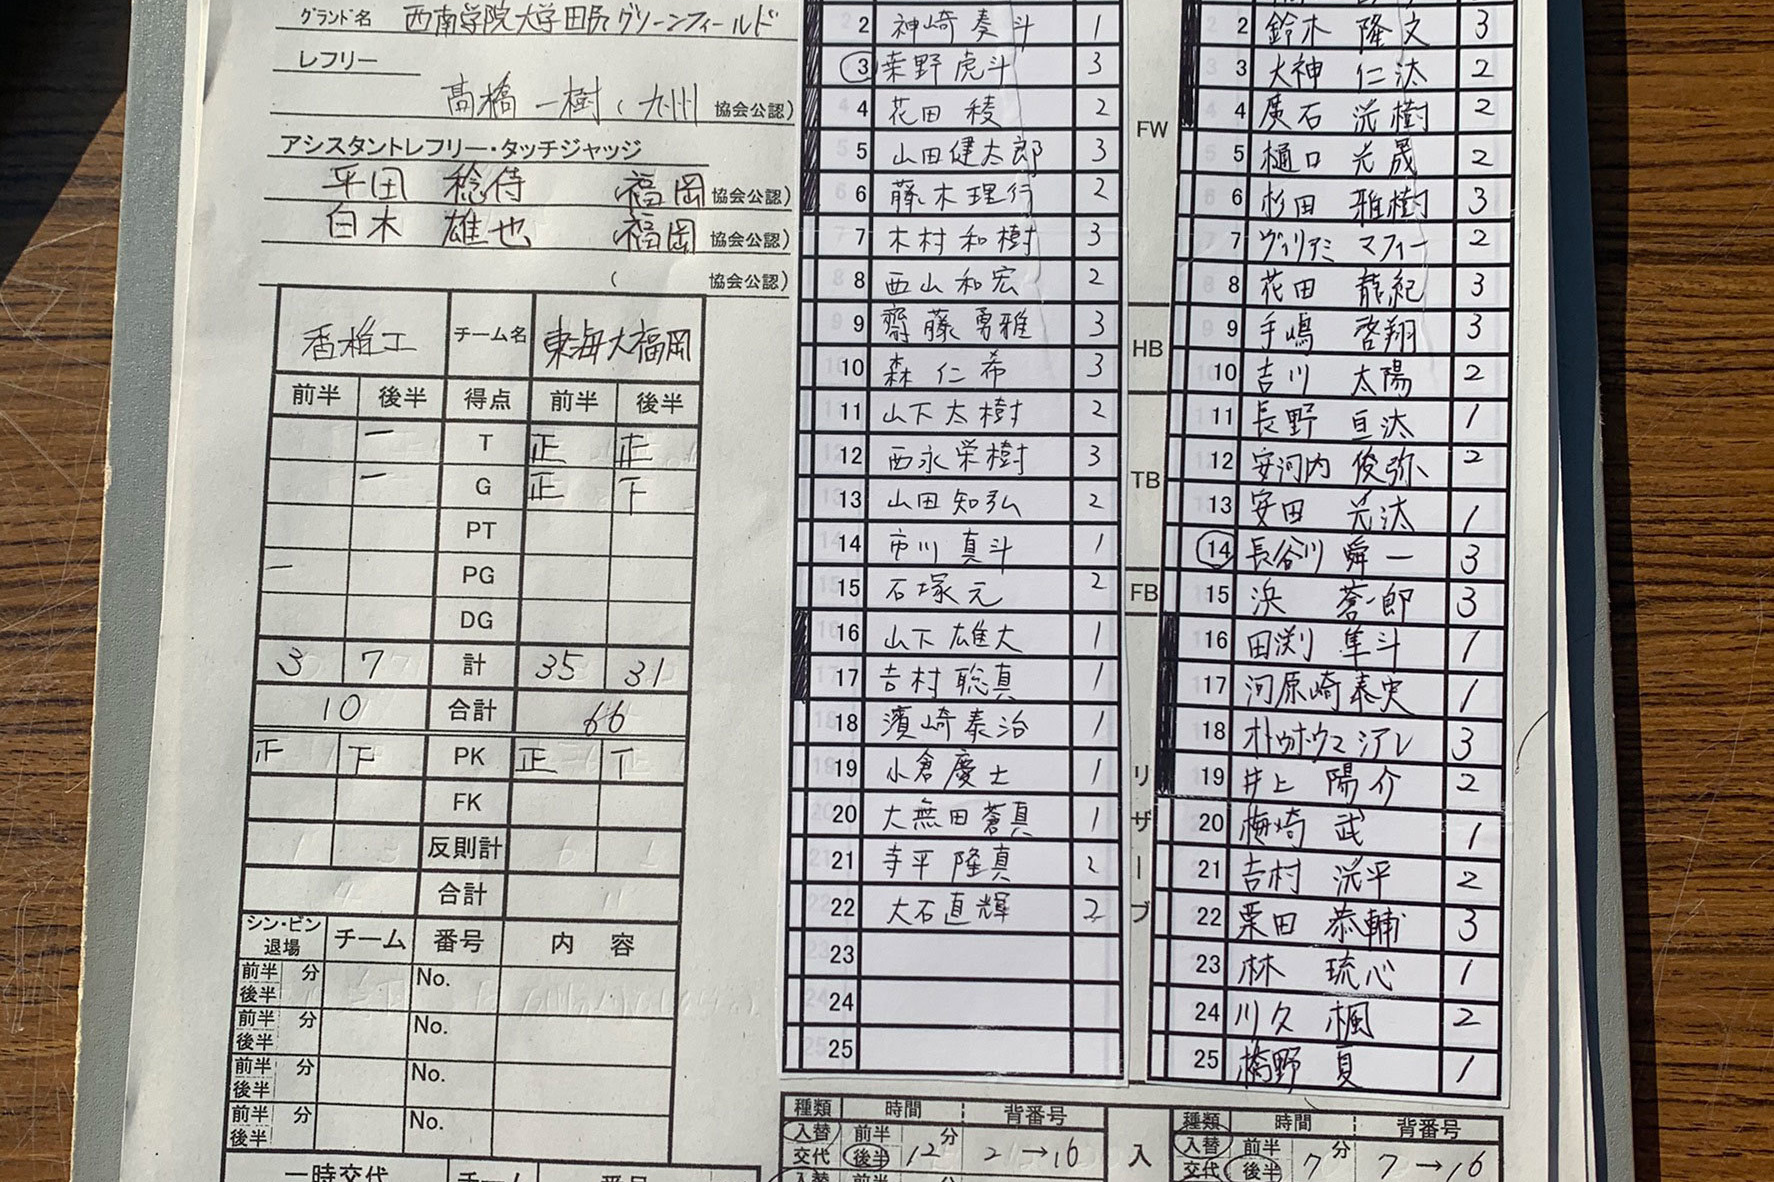 グランド名 西南学院大学田尻グリーンフィールド
レフリー
高橋 一樹 (九州 協会公認)
アシスタントレフリー・タッチジャッジ
平田 稔侍 福岡 協会公認)
白木 雄也 福岡 協会公認)
( 協会公認)
香椎工 チーム名 東海大福岡
前半 後半 得点 前半 後半
一 T 正 正
一 G 正 下
PT
一 PG
DG
3 7 計 35 31
10 合計 66
正 下 PK 正 丅
FK
反則計
合計
シン・ビン 退場 チーム 番号 内容
前半 後半 分 No.
前半 後半 分 No.
前半 後半 分 No.
前半 後半 分 No.
一時交代 チーム 番号
2 神崎 奏斗 1
3 桒野 虎斗 3
4 花田 稜 2
5 山田 健太郎 3
6 藤木 理行 2
7 木村 和樹 3
8 西山 和宏 2
9 齋藤 勇雅 3
10 森 仁希 3
11 山下 太樹 2
12 西永 栄樹 3
13 山田 知弘 2
14 市川 真斗 1
15 石塚 元 2
16 山下 雄大 1
17 吉村 聡真 1
18 濱崎 泰治 1
19 小倉 慶士 1
20 大無田 蒼真 1
21 寺平 隆真 2
22 大石 直輝 2
23
24
25
FW
HB
TB
FB
リザーブ
2 鈴木 隆文 3
3 大神 仁汰 2
4 廣石 滉樹 2
5 樋口 光晟 2
6 杉田 雅樹 3
7 ヴィリアミ マフィー 2
8 花田 龍紀 3
9 手嶋 啓翔 3
10 吉川 太陽 2
11 長野 亘汰 1
12 安河内 俊弥 2
13 安田 光汰 1
14 長谷川 舜一 3
15 浜 蒼一郎 3
16 田渕 隼斗 1
17 河原崎 泰史 1
18 3
19 井上 陽介 2
20 梅崎 武 1
21 吉村 滉平 2
22 栗田 恭輔 3
23 林 琉心 1
24 川久 楓 2
25 橋野 夏 1
種類 時間 背番号
入替 交代 前半 後半 12分 2→16
入替 前半
入
種類 時間 背番号
入替 交代 前半 後半 7分 7→16